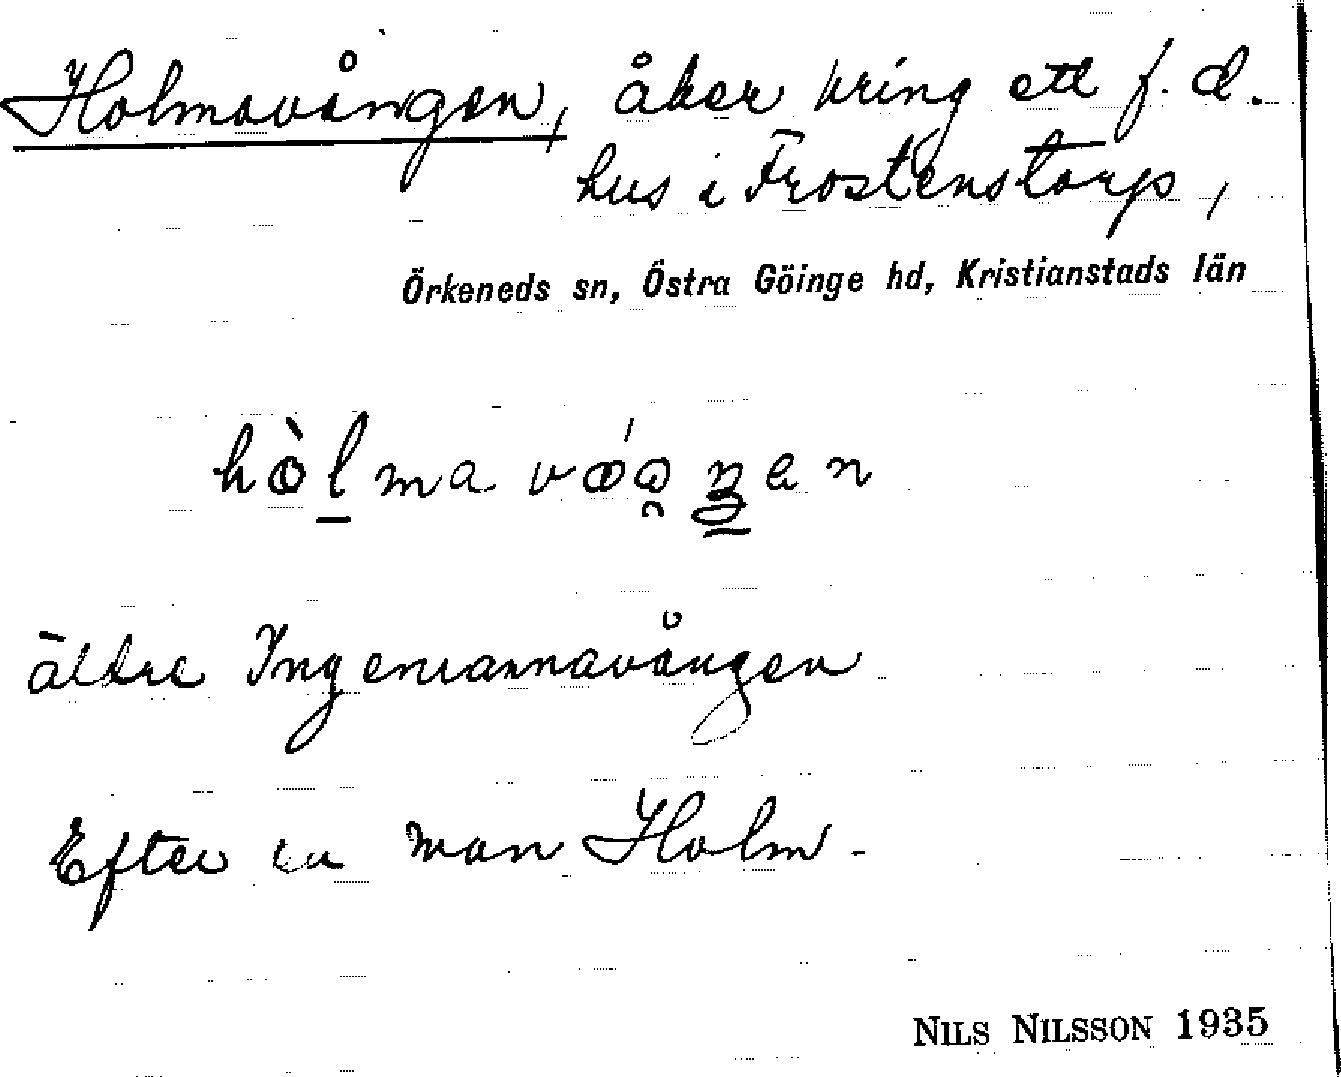 Holmavången, åker kring ett f. d.
hus i Frostenstorp,
Örkeneds sn, Östra Göinge hd, Kristianstads län
äldre Ingemannavången
Efter en man Holm.
NILS NILSSON 1935